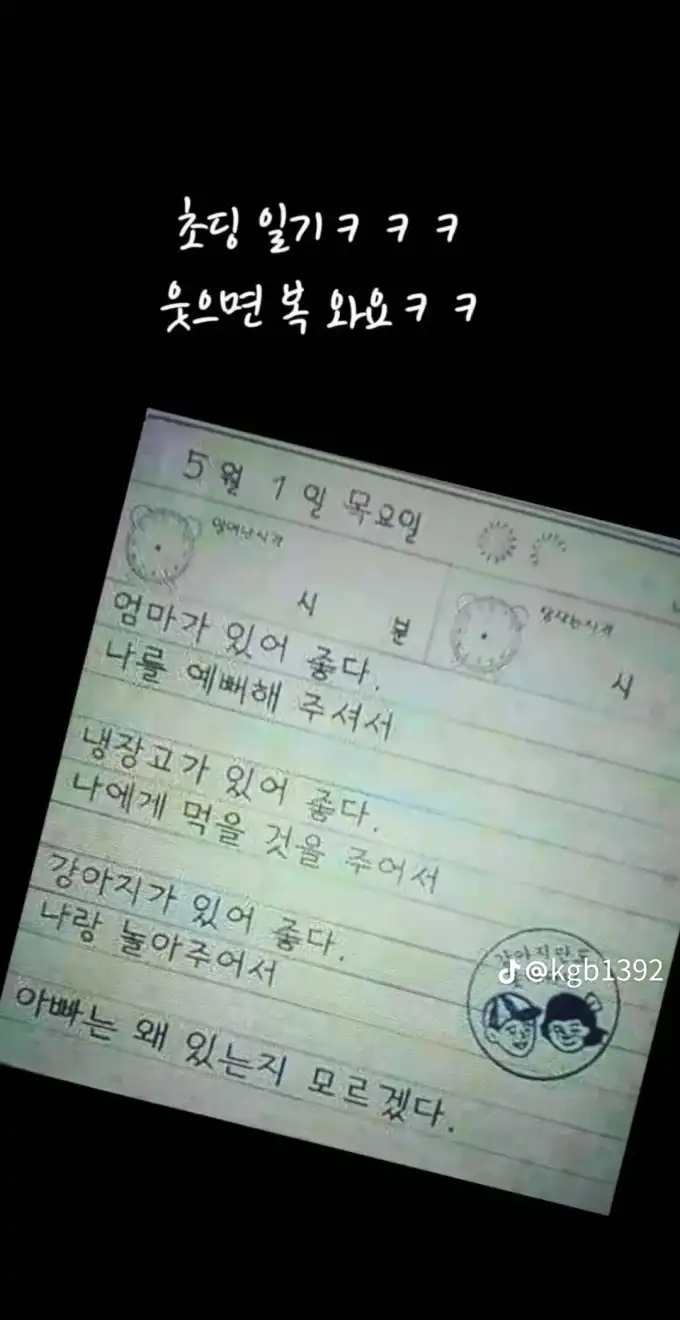 초딩 일기ㅋ ㅋ ㅋ
웃으면 복 와요ㅋ ㅋ
5월 1일 목요일
일어난시각
시 분
잠자는시각
시
엄마가 있어 좋다.
나를 예뻐해 주셔서
냉장고가 있어 좋다.
나에게 먹을 것을 주어서
강아지가 있어 좋다.
나랑 놀아주어서
아빠는 왜 있는지 모르겠다.
@kgb1392